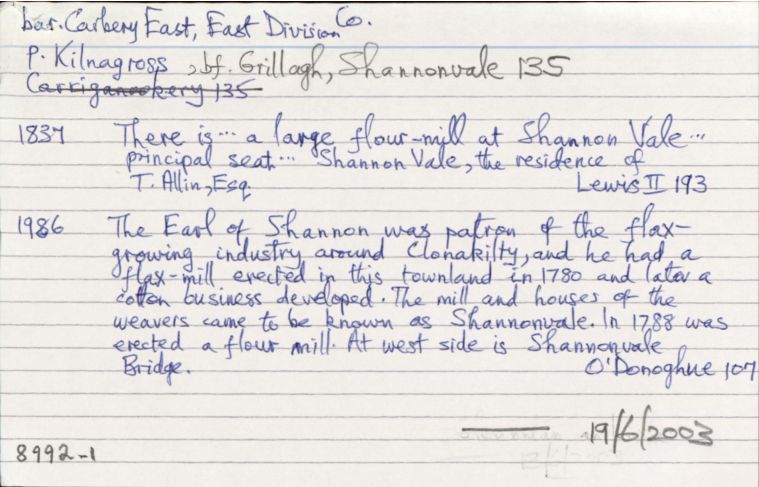 bar. Carbery East, East Division Co.
p. Kilnagross, bf. Grillagh, Shannonvale 135
Carriganookery 135
1837 There is... a large flour-mill at Shannon Vale...
principal seat... Shannon Vale, the residence of
T. Allin, Esq. Lewis II 193
1986 The Earl of Shannon was patron of the flax-
growing industry around Clonakilty, and he had a
flax-mill erected in this townland in 1780 and later a
cotton business developed. The mill and houses of the
weavers came to be known as Shannonvale. In 1788 was
erected a flour mill. At west side is Shannonvale
Bridge. O'Donoghue 107
19/6/2003
8992-1